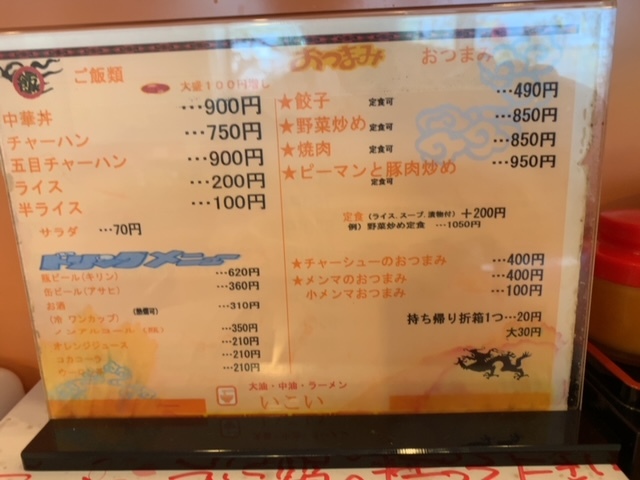 飯 ご飯類
大盛100円増し
中華丼 …900円
チャーハン …750円
五目チャーハン …900円
ライス …200円
半ライス …100円
サラダ …70円
ドリンクメニュー
瓶ビール(キリン) …620円
缶ビール(アサヒ) …360円
お酒 (熱燗可) …310円
(冷 ワンカップ)
ノンアルコール …350円
オレンジジュース …210円
コカコーラ …210円
ウーロン茶 …210円
おつまみ おつまみ
★餃子 定食可 …490円
★野菜炒め 定食可 …850円
★焼肉 定食可 …850円
★ピーマンと豚肉炒め …950円
定食可
定食 (ライス、スープ、漬物付) +200円
例) 野菜炒め定食 …1050円
★チャーシューのおつまみ …400円
★メンマのおつまみ …400円
小メンマおつまみ …100円
持ち帰り折箱1つ…20円
大30円
大油・中油・ラーメン
いこい